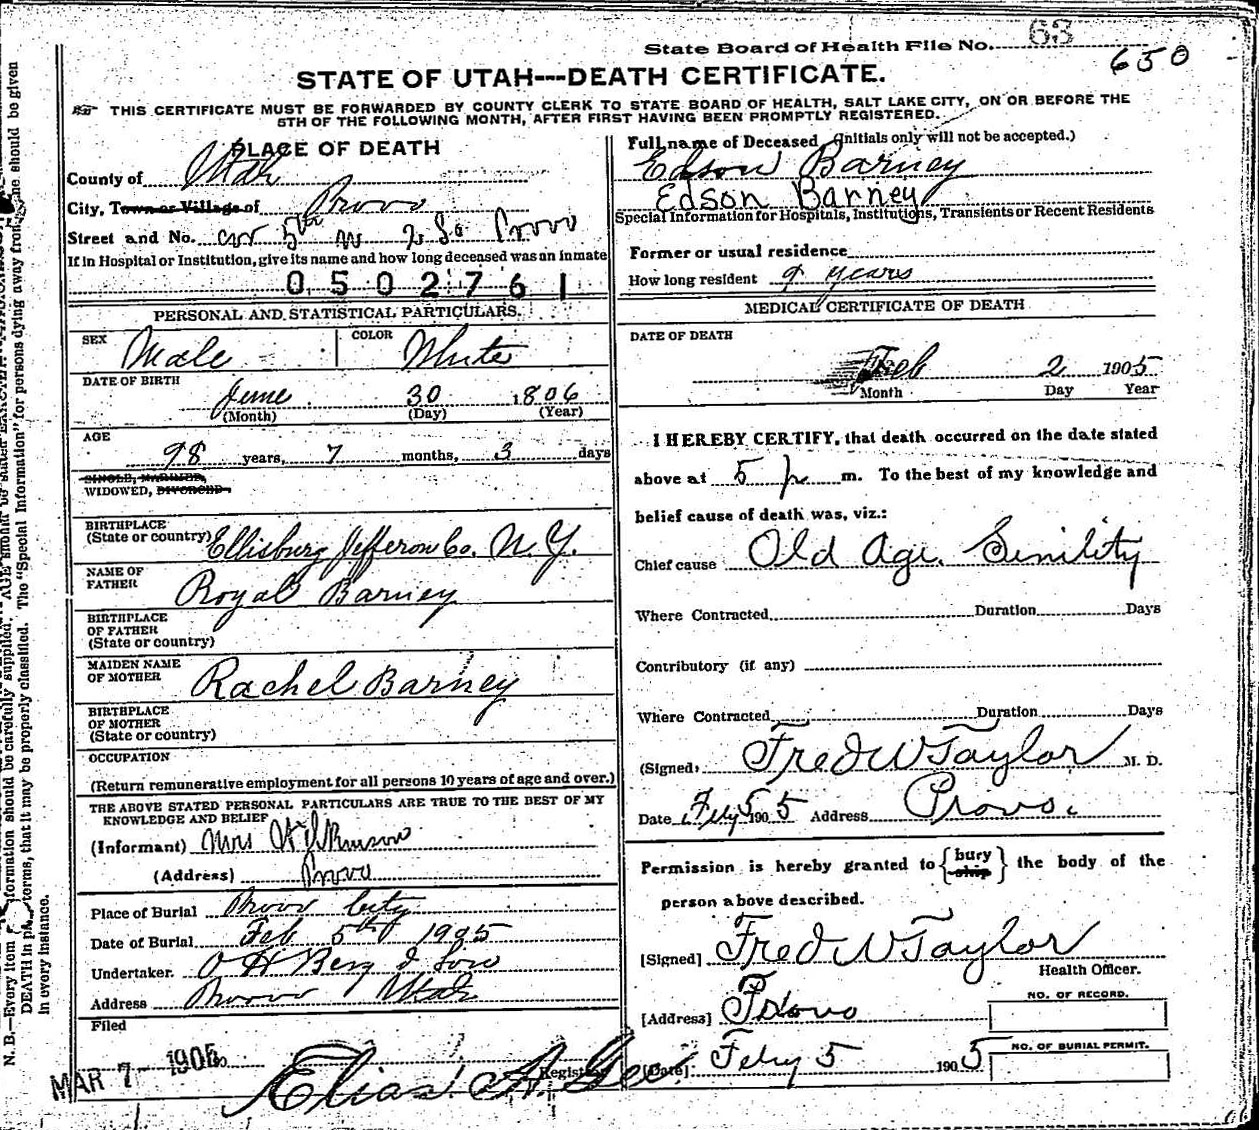 State Board of Health File No. 63
650
STATE OF UTAH---DEATH CERTIFICATE.
THIS CERTIFICATE MUST BE FORWARDED BY COUNTY CLERK TO STATE BOARD OF HEALTH, SALT LAKE CITY, ON OR BEFORE THE
5TH OF THE FOLLOWING MONTH, AFTER FIRST HAVING BEEN PROMPTLY REGISTERED.
PLACE OF DEATH
County of Utah
City, Town or Village of Provo
Street and No. cor 5th W 2 So Provo
If in Hospital or Institution, give its name and how long deceased was an inmate
0502761
PERSONAL AND STATISTICAL PARTICULARS.
SEX Male COLOR White
DATE OF BIRTH
June 30 1806
(Month) (Day) (Year)
AGE
98 years, 7 months, 3 days
SINGLE, MARRIED,
WIDOWED, DIVORCED
BIRTHPLACE
(State or country) Ellisburg Jefferson Co. N.Y.
NAME OF
FATHER Royal Barney
BIRTHPLACE
OF FATHER
(State or country)
MAIDEN NAME
OF MOTHER Rachel Barney
BIRTHPLACE
OF MOTHER
(State or country)
OCCUPATION
(Return remunerative employment for all persons 10 years of age and over.)
THE ABOVE STATED PERSONAL PARTICULARS ARE TRUE TO THE BEST OF MY
KNOWLEDGE AND BELIEF
(Informant) Mrs
(Address) Provo
Place of Burial Provo City
Date of Burial Feb 5th 1905
Undertaker. O H Berg & Son
Address Provo Utah
Filed
MAR 7- 1905
Elias A. Gee Registrar
Full name of Deceased (Initials only will not be accepted.)
Edson Barney
Edson Barney
Special Information for Hospitals, Institutions, Transients or Recent Residents
Former or usual residence
How long resident 9 years
MEDICAL CERTIFICATE OF DEATH
DATE OF DEATH
Feb 2 1905
Month Day Year
I HEREBY CERTIFY, that death occurred on the date stated
above at 5 p m. To the best of my knowledge and
belief cause of death was, viz.:
Chief cause Old Age. Senility
Where Contracted Duration Days
Contributory (if any)
Where Contracted Duration Days
(Signed) Fred W Taylor M. D.
Date Feby 5 1905 Address Provo.
Permission is hereby granted to {bury
ship} the body of the
person above described.
[Signed] Fred W Taylor
Health Officer.
[Address] Provo
NO. OF RECORD.
[Date] Feby 5 1905
NO. OF BURIAL PERMIT.
66
N. B.—Every item of information should be carefully supplied. AGE should be stated EXACTLY.
DEATH in plain terms, that it may be properly classified. The "Special Information" for persons dying away from home should be given
in every instance.